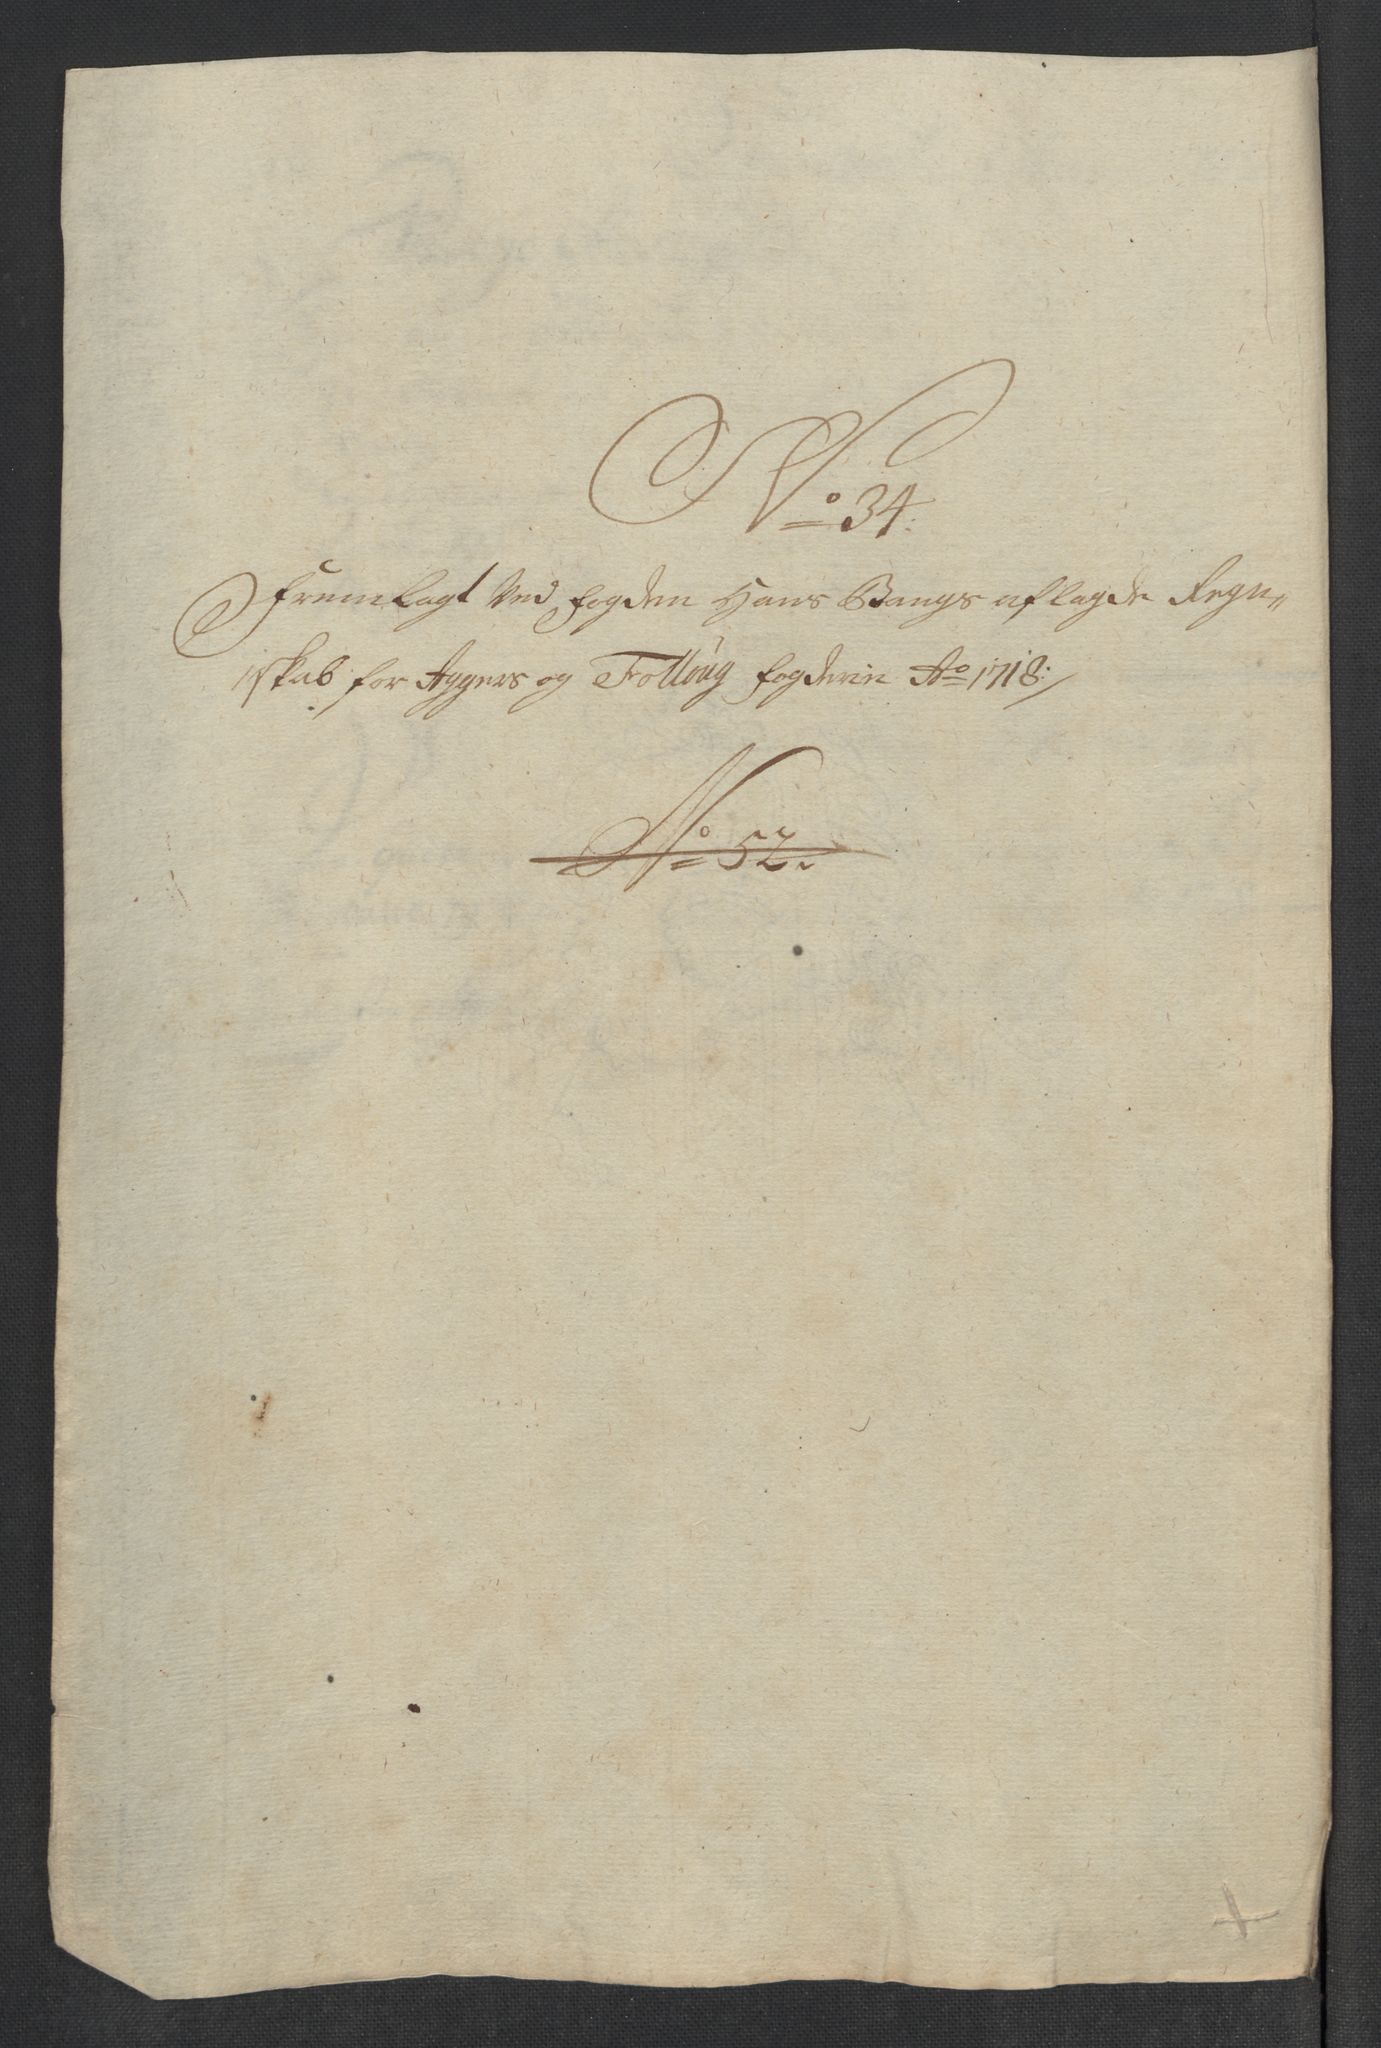 No 34.
Fremlagt Ved fogden Hans Bangs aflagde Regn„
skab for Aggers og Follöug fogderie Ao 1718.
No 52.